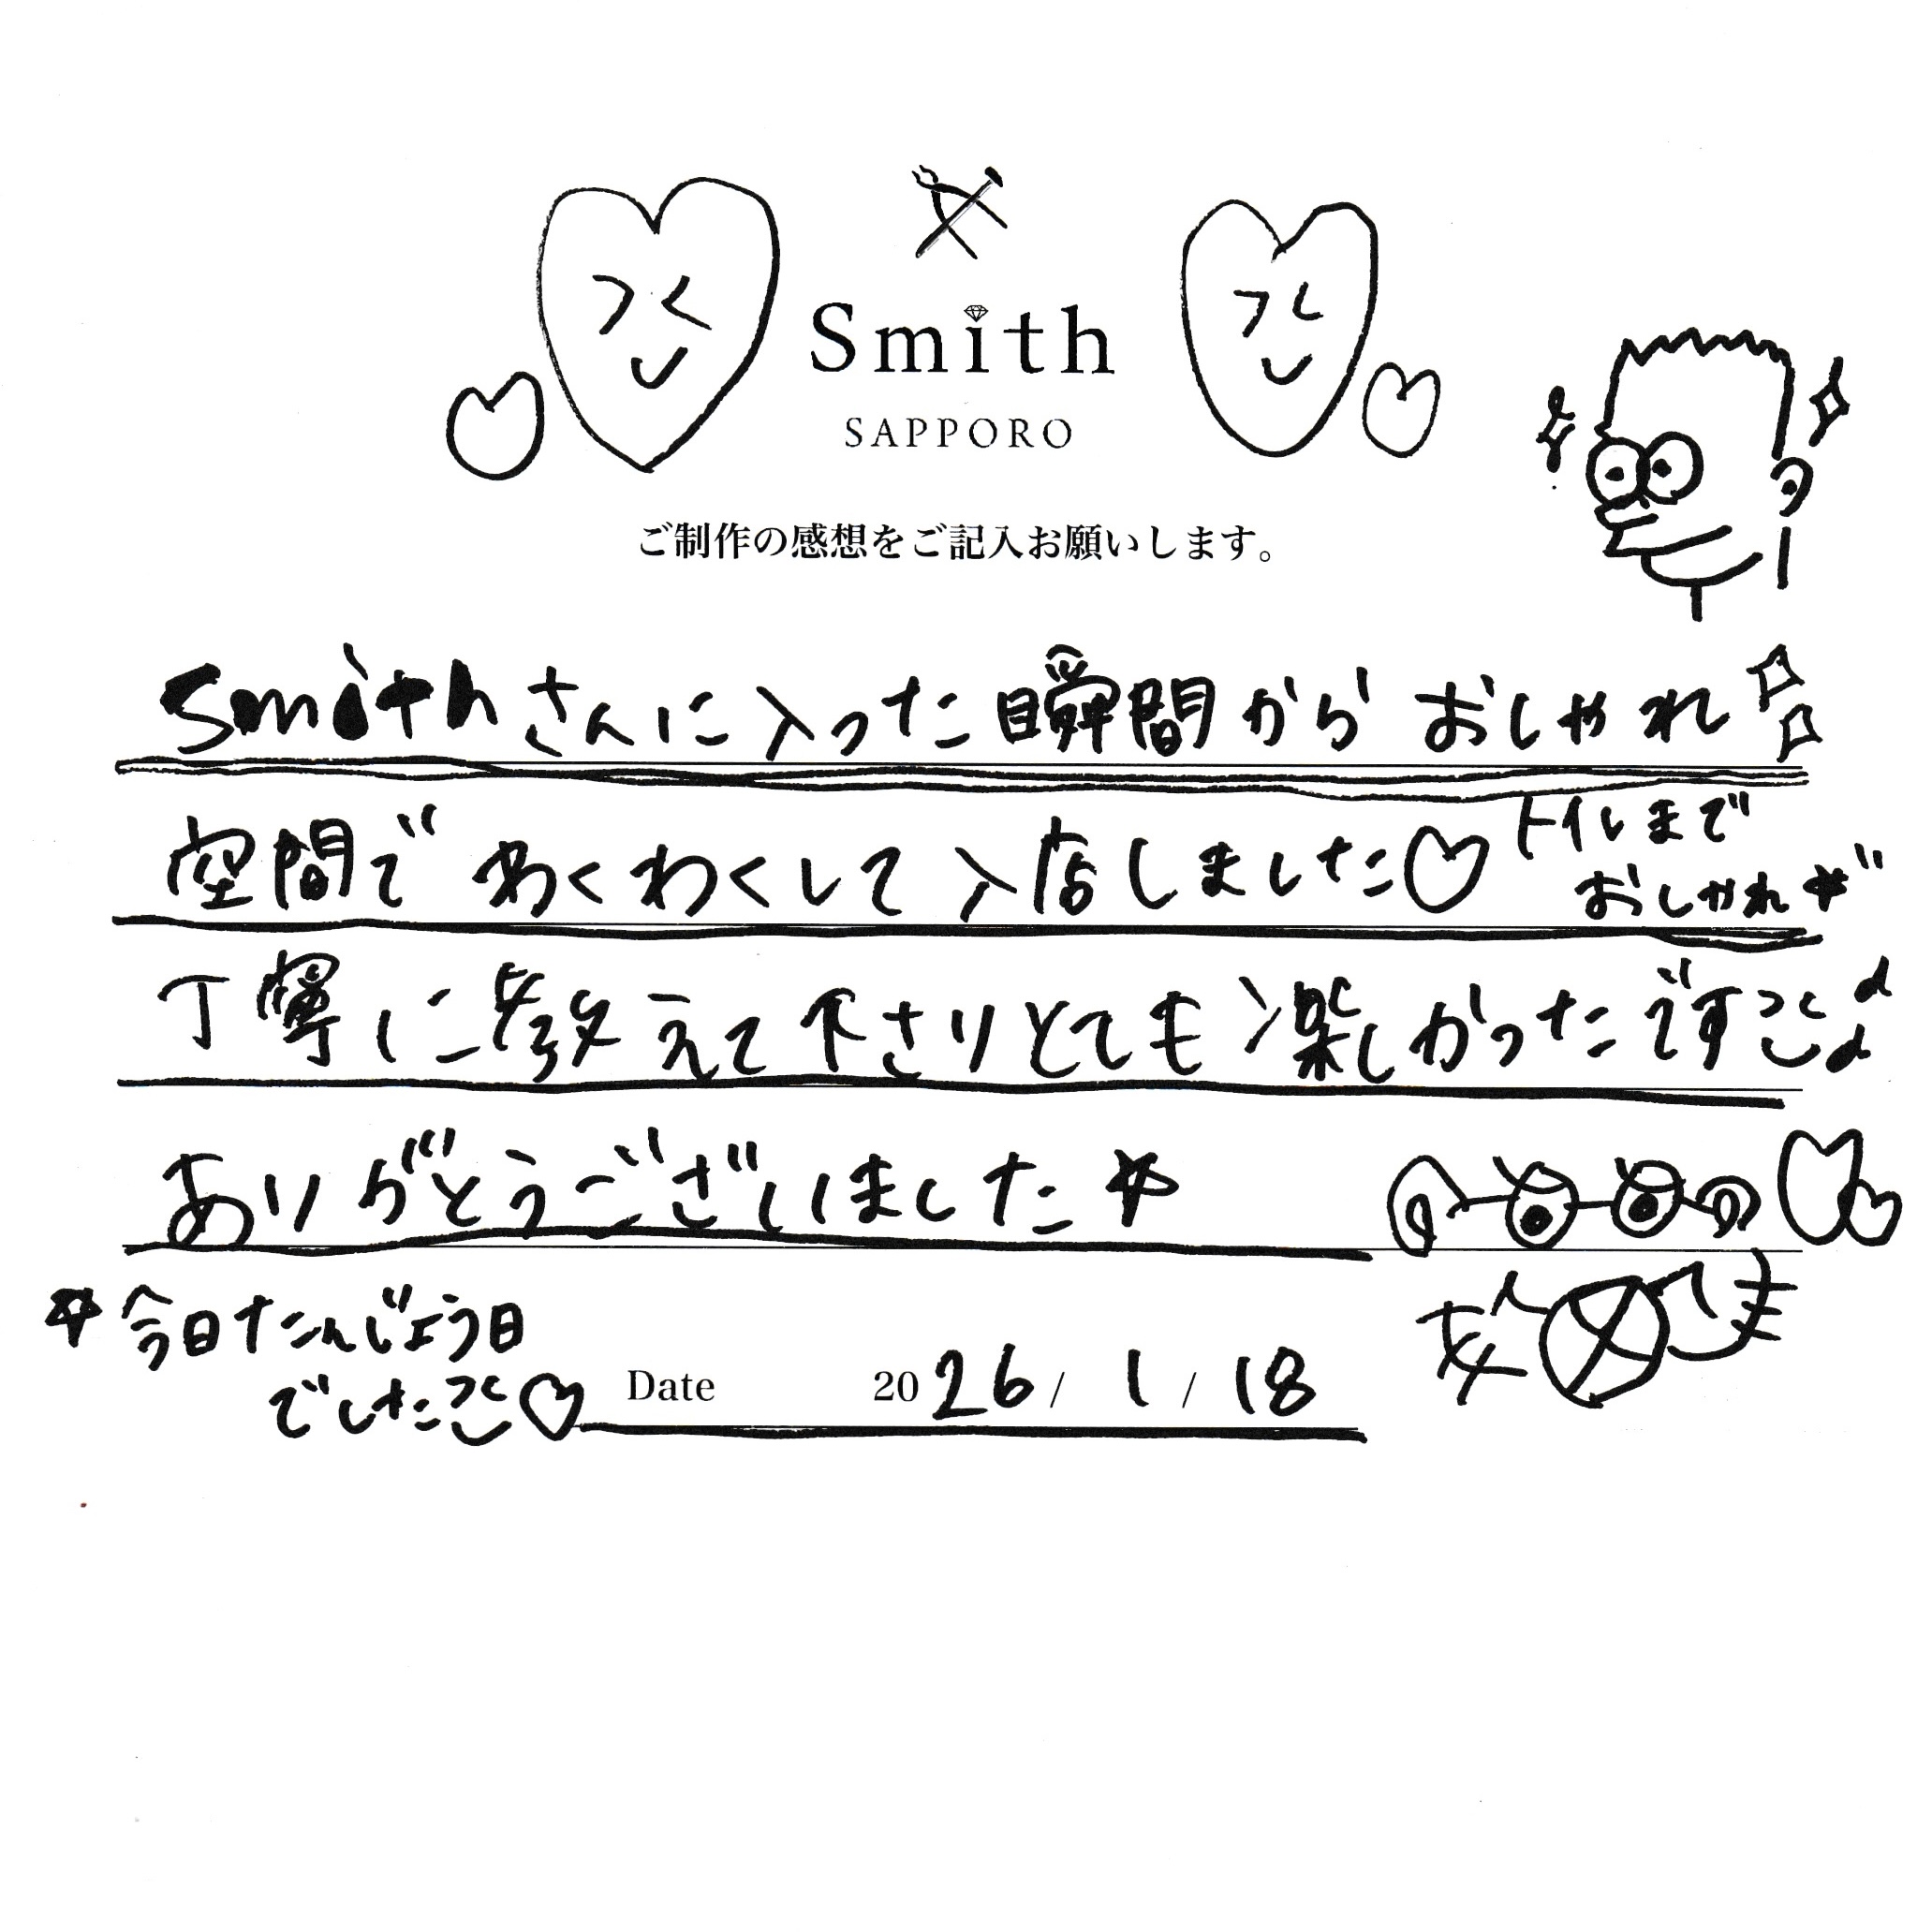 Smith
SAPPORO
ご制作の感想をご記入お願いします。
smithさんに入った瞬間からおしゃれ
空間でわくわくして入店しました♡
トイレまで
おしゃれ☆
丁寧に教えて下さりとても楽しかったです
ありがとうございました☆
☆今日たんじょう日
でした♡
Date 2026/1/18